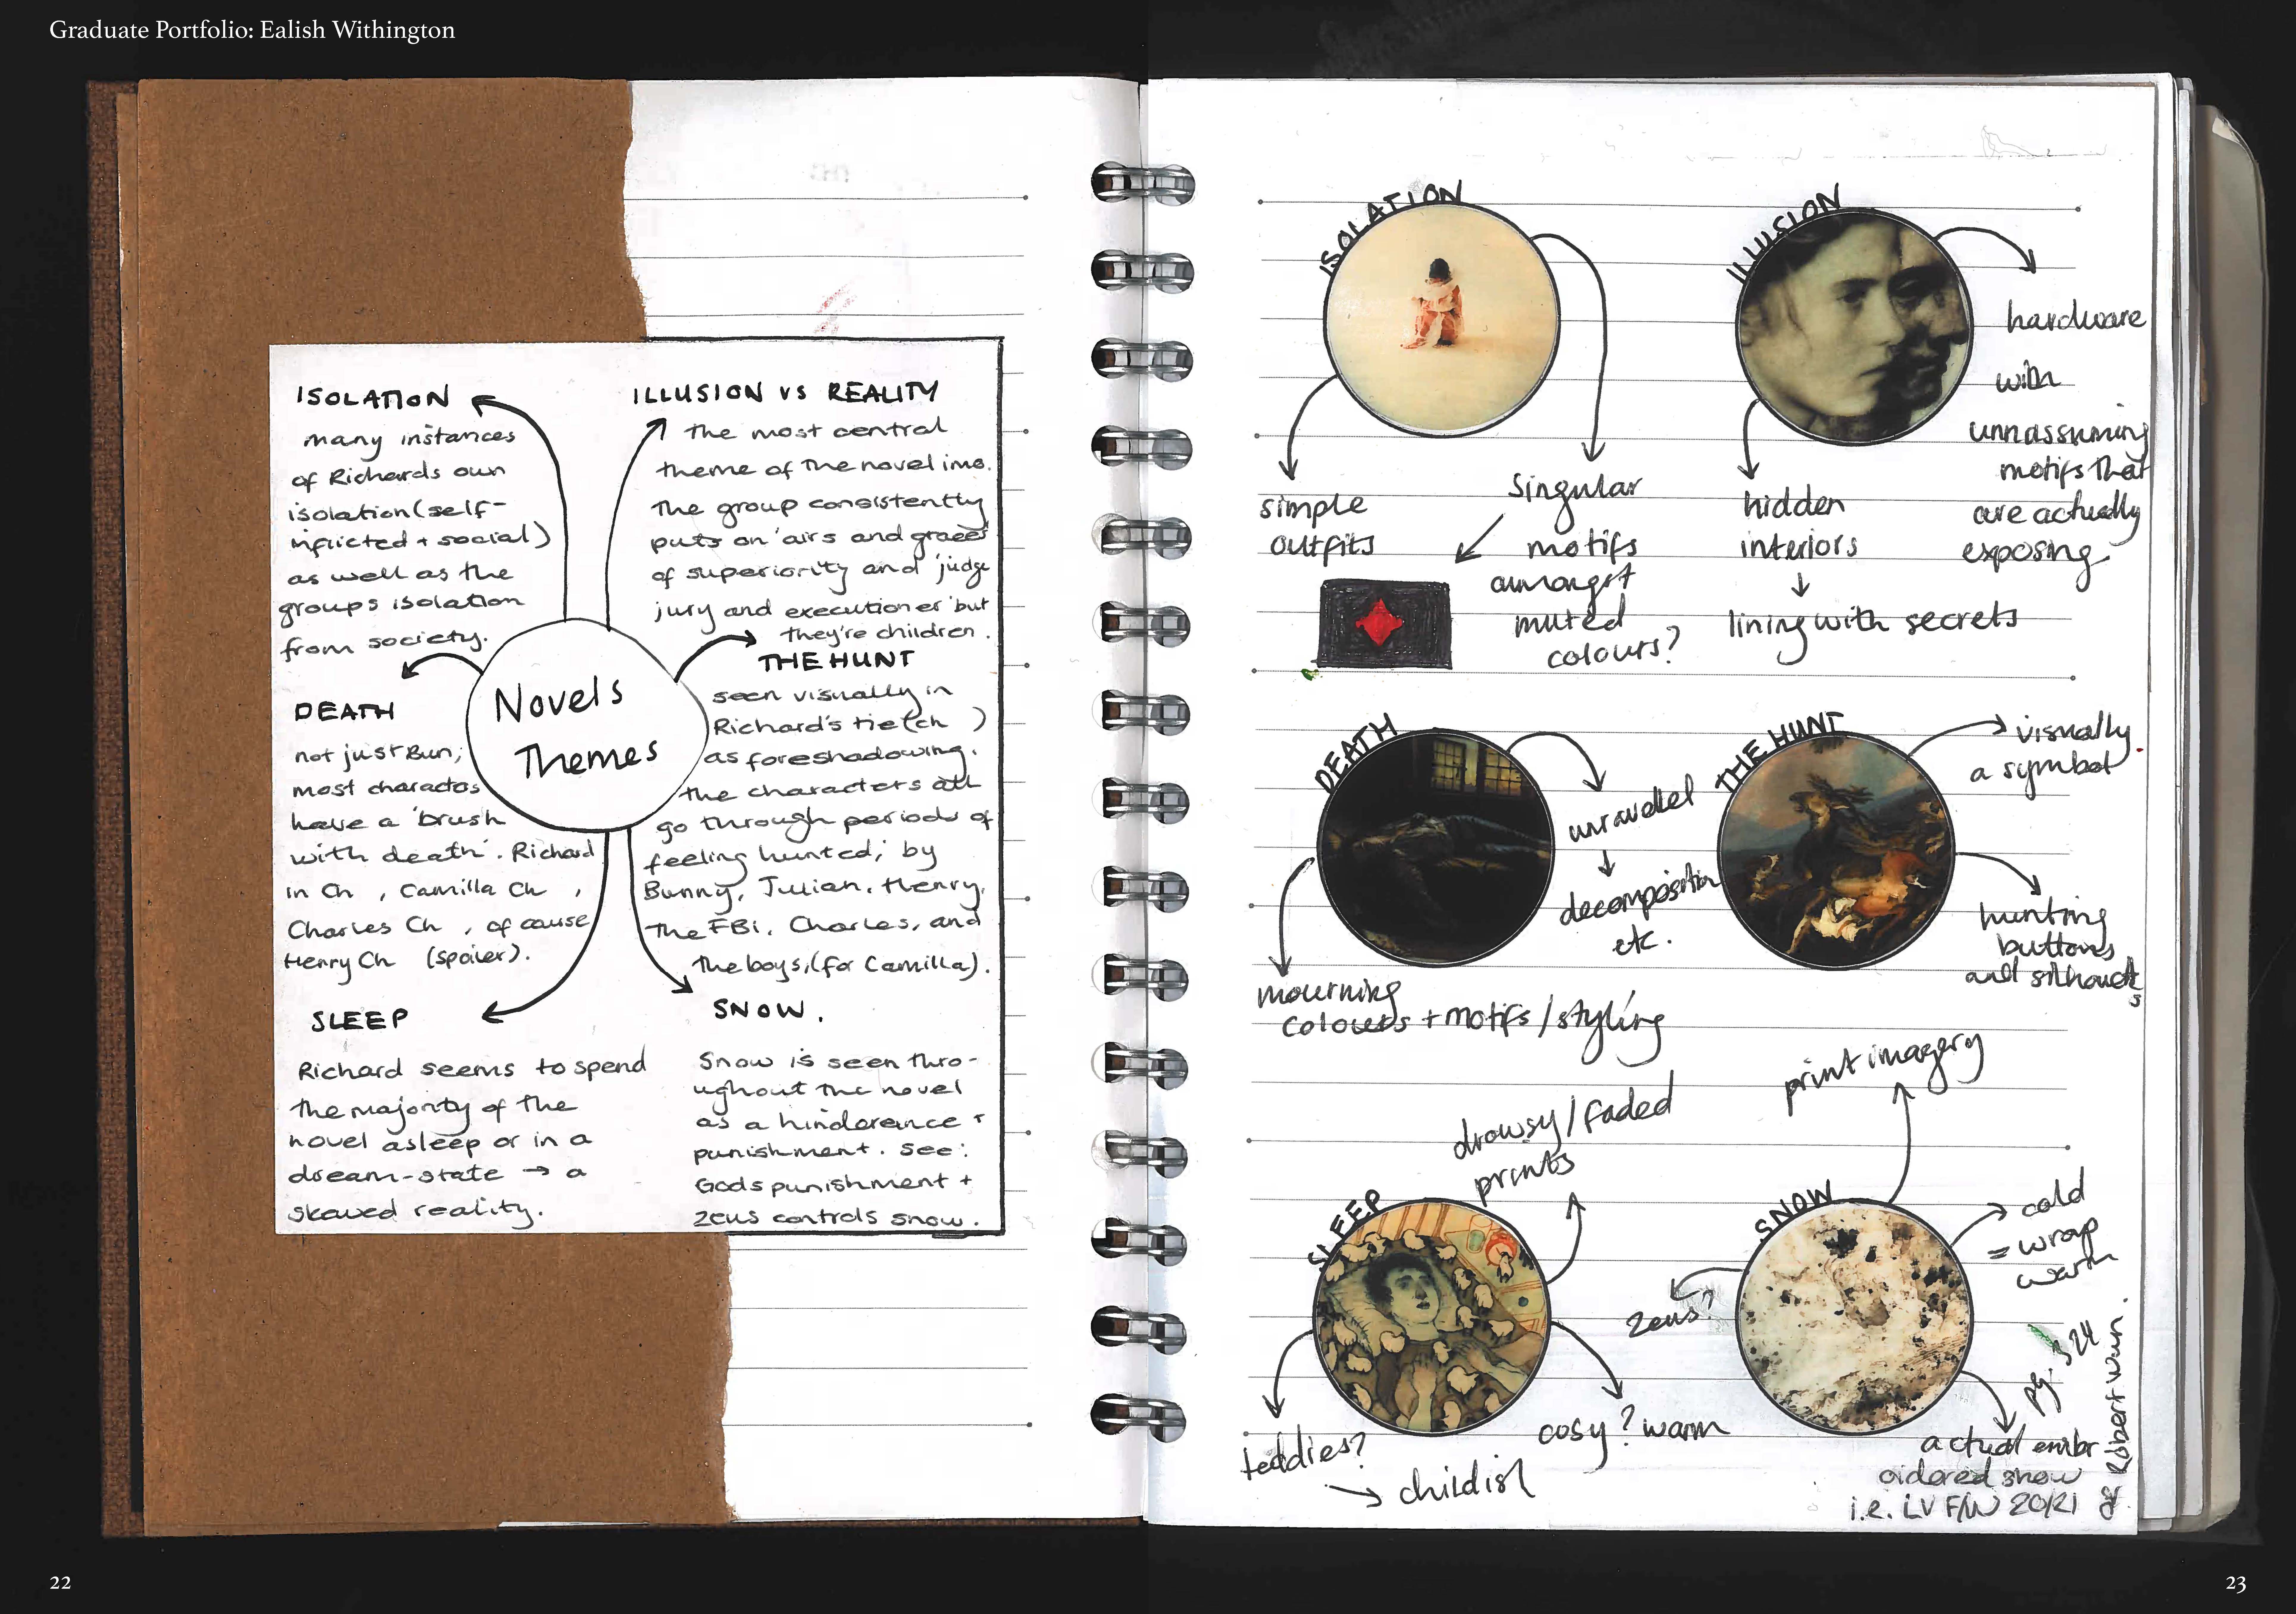 Graduate Portfolio: Ealish Withington
ISOLATION
many instances
of Richards own
isolation (self-
inflicted + social)
as well as the
groups isolation
from society.
ILLUSION VS REALITY
the most central
theme of the novel imo.
The group consistently
puts on 'airs and graces'
of superiority and 'judge
jury and executioner' but
they're children.
THE HUNT
seen visually in
Richard's tie (ch )
as foreshadowing.
the characters all
go through periods of
feeling hunted; by
Bunny, Julian, Henry,
the FBi, Charles, and
the boys, (for Camilla).
Novels
Themes
DEATH
not just Bun;
most charactos
have a 'brush
with death'. Richard
in Ch , Camilla Ch ,
Charles Ch , of cause
Henry Ch (spoiler).
SLEEP
Richard seems to spend
the majority of the
novel asleep or in a
dream-state → a
skewed reality.
SNOW.
Snow is seen thro-
ughout the novel
as a hinderence +
punishment. See:
Gods punishment +
zeus controls snow.
22
ISOLATION
simple
outfits
Singular
motifs
amongst
muted
colours?
ILLUSION
hardware
with
unnassuming
motifs that
are actually
exposing
hidden
interiors
↓
lining with secrets
DEATH
unravelled
↓
decomposition
etc.
mourning
colours + motifs / styling
THE HUNT
visually
a symbol
hunting
buttons
and silhouettes
SLEEP
drowsy / faded
prints
teddies?
→ childish
cosy? warm
SNOW
print imagery
cold
= wrap
warm
zeus?
pg. 324
actual embr
oidered snow
i.e. LV F/W 20/21
or Robert Wun.
23